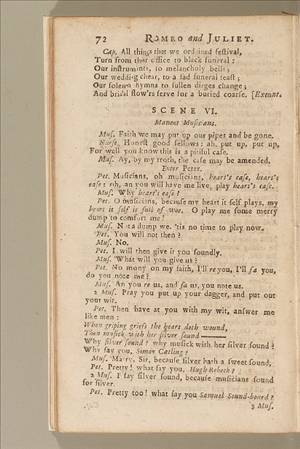 72 ROMEO and JULIET.
Cap. All things that we ordained festival,
Turn from their office to black funeral:
Our instruments, to melancholy bells;
Our wedding chear, to a sad funeral feast;
Our solemn hymns to sullen dirges change;
And bridal flow'rs serve for a buried coarse. [Exeunt.
SCENE VI.
Manent Musicians.
Mus. Faith we may put up our pipes and be gone.
Nurse. Honest good fellows: ah, put up, put up,
For well you know this is a pitiful case.
Mus. Ay, by my troth, the case may be amended.
Enter Peter.
Pet. Musicians, oh musicians, heart's ease, heart's
ease: oh, an you will have me live, play heart's ease.
Mus. Why heart's ease?
Pet. O musicians, because my heart it self plays, my
heart it self is full of woe. O play me some merry
dump to comfort me!
Mus. Not a dump we, 'tis no time to play now.
Pet. You will not then?
Mus. No.
Pet. I will then give it you soundly.
Mus. What will you give us?
Pet. No mony on my faith, I'll re you, I'll fa you,
do you note me?
Mus. An you re us, and fa us, you note us.
2 Mus. Pray you put up your dagger, and put out
your wit.
Pet. Then have at you with my wit, answer me
like men:
When griping griefs the heart doth wound,
Then musick with her silver sound———
Why silver sound? why musick with her silver sound?
Why say you, Simon Catling?
Mus. Marry, Sir, because silver hath a sweet sound.
Pet. Pretty! what say you, Hugh Rebeck?
2 Mus. I say silver sound, because musicians sound
for silver.
Pet. Pretty too! what say you Samuel Sound-board?
3 Mus.